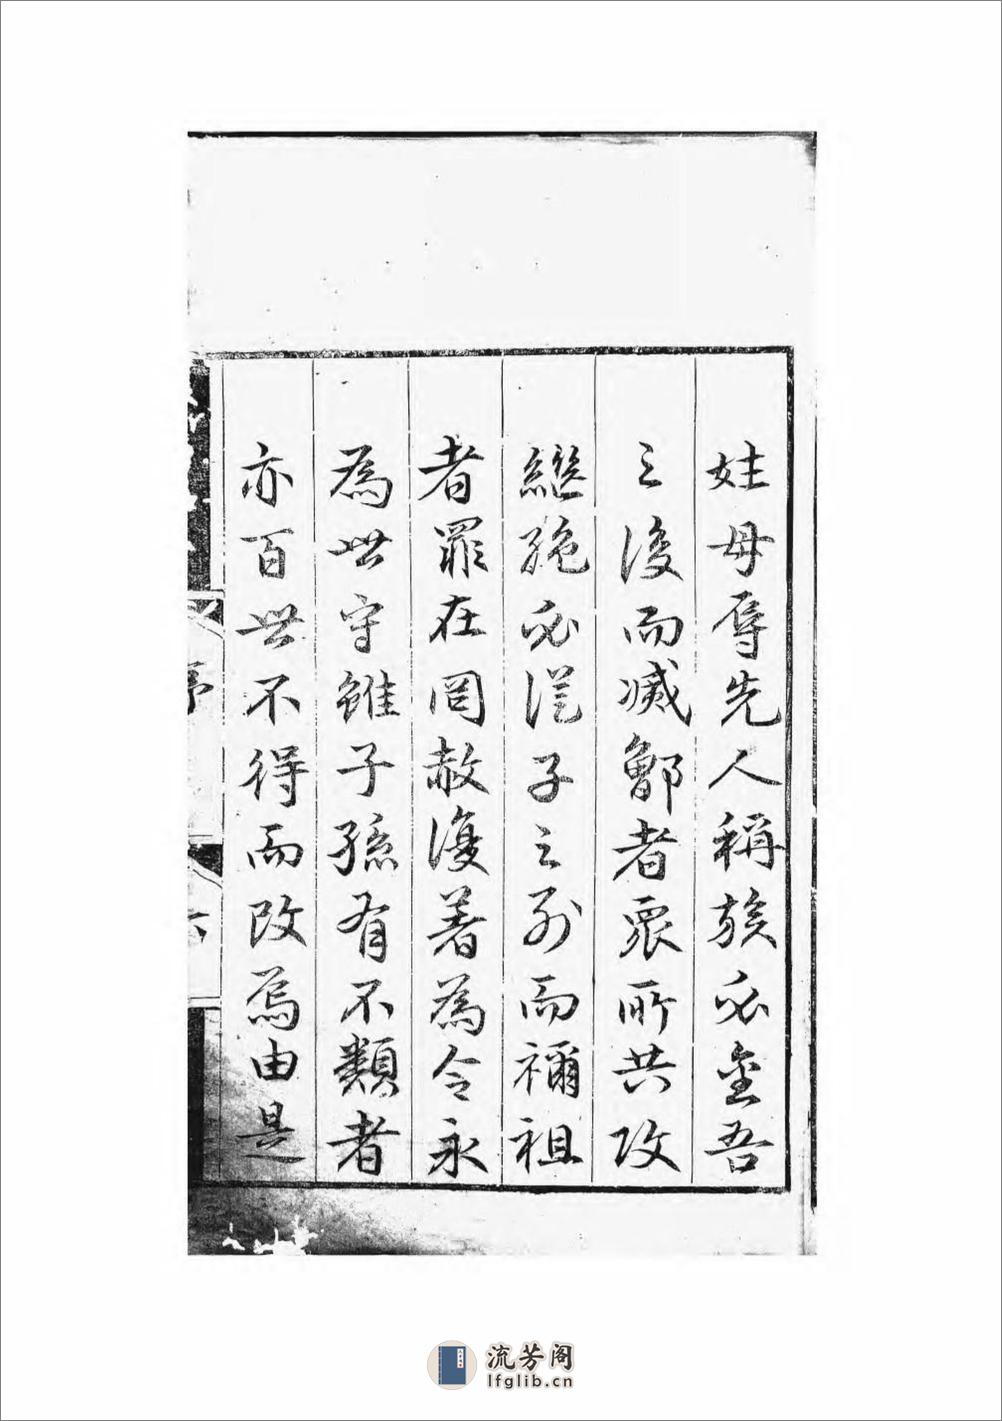 姓母辱先人稱族必奎吾
之後而滅鄫者衆所共攻
繼絶必從子之列而禰祖
者罪在罔赦復著為令永
為世守雖子孫有不類者
亦百世不得而改焉由是
序
六
流芳阁
lfglib.cn